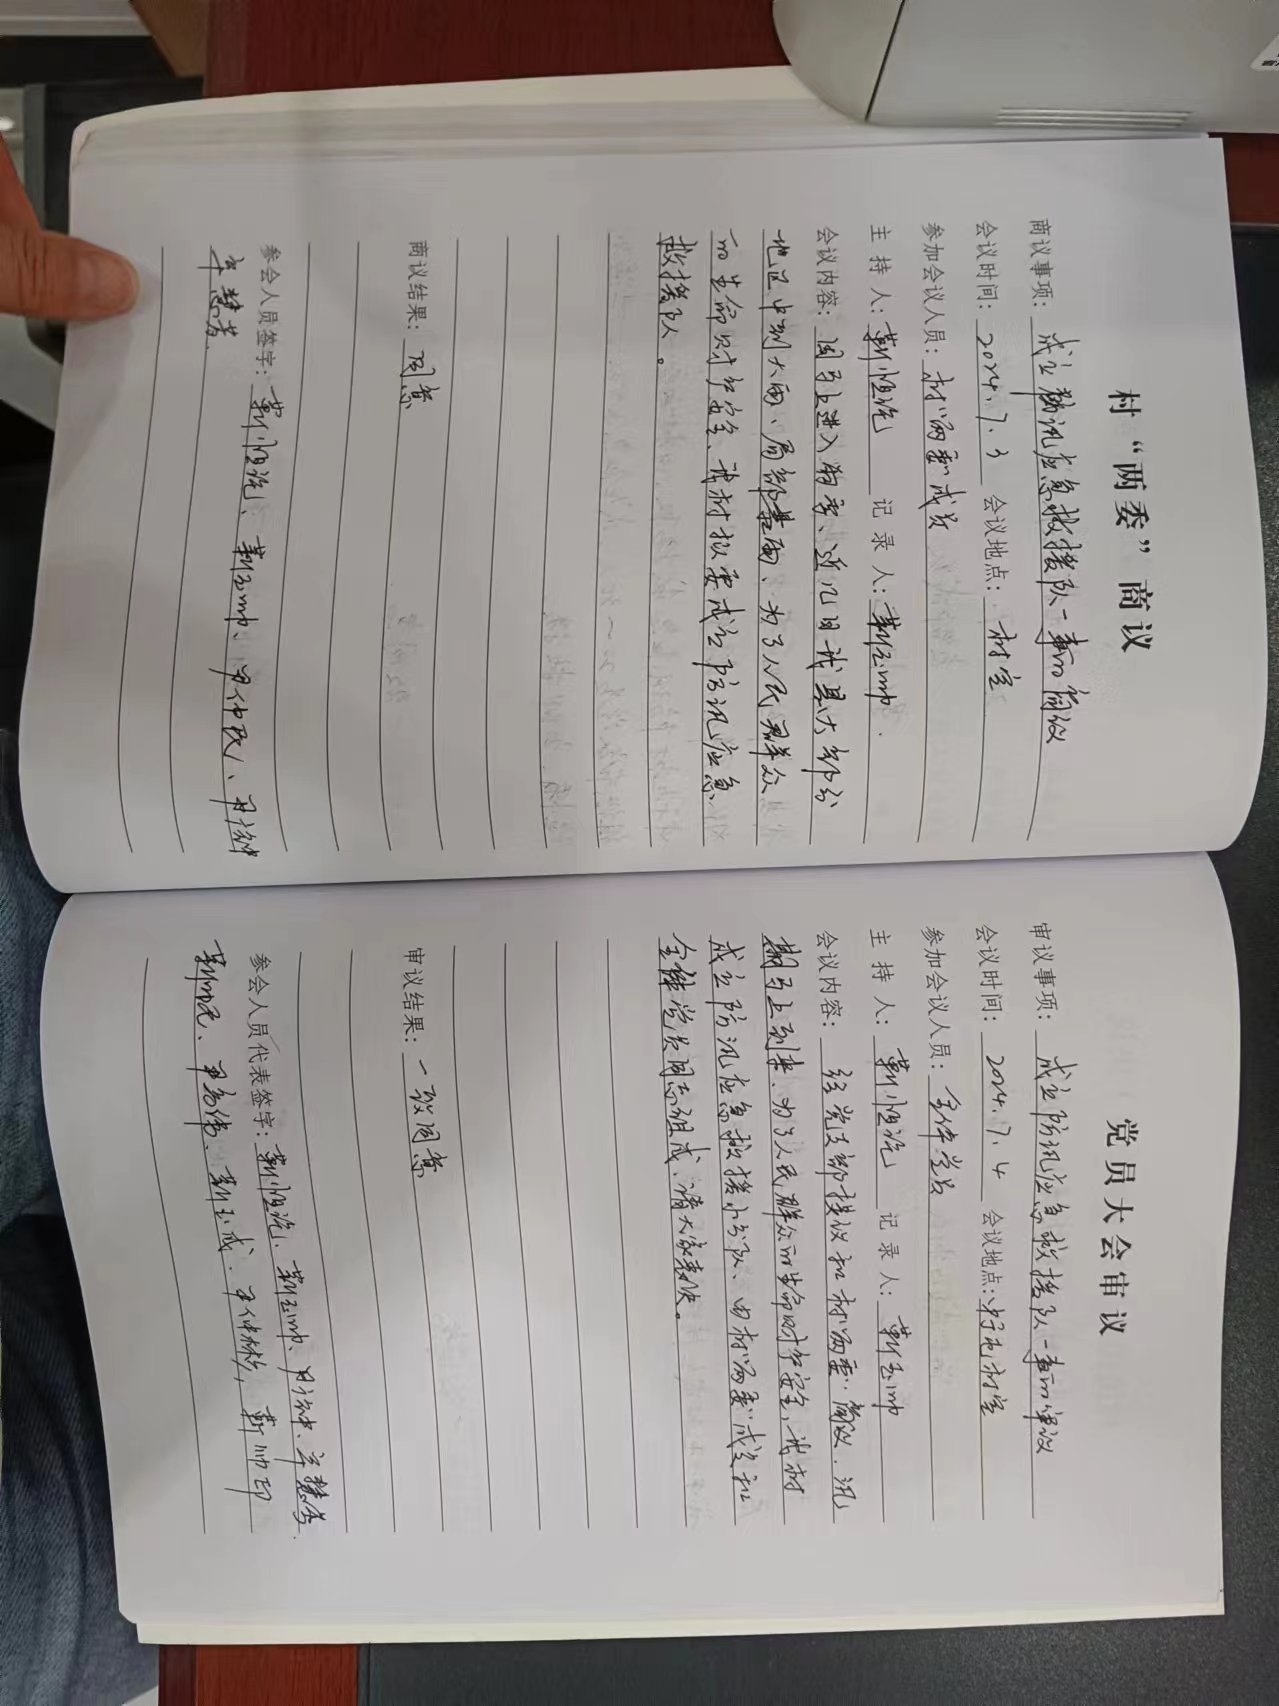 村“两委”商议
商议事项：成立防汛应急救援队一事的商议
会议时间：2024.7.3 会议地点：村室
参加会议人员：村“两委”成员
主 持 人：靳恒范 记 录 人：靳玉帅
会议内容：因马上进入雨季、近几日我县大部分
地区中到大雨、局部暴雨、为了人民群众
的生命财产安全、我村拟要成立防汛应急
救援队。
商议结果：同意
参会人员签字：靳恒范、靳玉帅、
党员大会审议
审议事项：成立防汛应急救援队一事的审议
会议时间：2024.7.4 会议地点：村室
参加会议人员：全体党员
主 持 人：靳恒范 记 录 人：靳玉帅
会议内容：经党支部提议和村“两委”商议.汛
期马上到来.为了人民群众的生命财产安全,我村
成立防汛应急救援小分队、由村“两委”成员和
全体党员同志组成.请大家表决。
审议结果：一致同意
参会人员代表签字：靳恒范、靳玉帅、
靳玉成